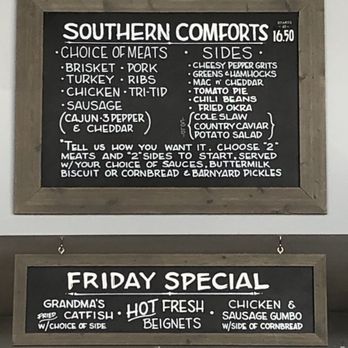 SOUTHERN COMFORTS STARTS AT 16.50
· CHOICE OF MEATS
· BRISKET · PORK
· TURKEY · RIBS
· CHICKEN · TRI-TIP
· SAUSAGE
(CAJUN · 3 PEPPER
& CHEDDAR)
· SIDES ·
· CHEESY PEPPER GRITS
· GREENS & HAMHOCKS
· MAC N' CHEDDAR
· TOMATO PIE
· CHILI BEANS
· FRIED OKRA
COLE SLAW
COUNTRY CAVIAR
POTATO SALAD
"TELL US HOW YOU WANT IT. CHOOSE "2"
MEATS AND "2" SIDES TO START, SERVED
W/YOUR CHOICE OF SAUCES, BUTTERMILK
BISCUIT OR CORNBREAD & BARNYARD PICKLES
FRIDAY SPECIAL
GRANDMA'S
FRIED CATFISH
W/CHOICE OF SIDE
· HOT FRESH ·
BEIGNETS
CHICKEN &
SAUSAGE GUMBO
W/SIDE OF CORNBREAD